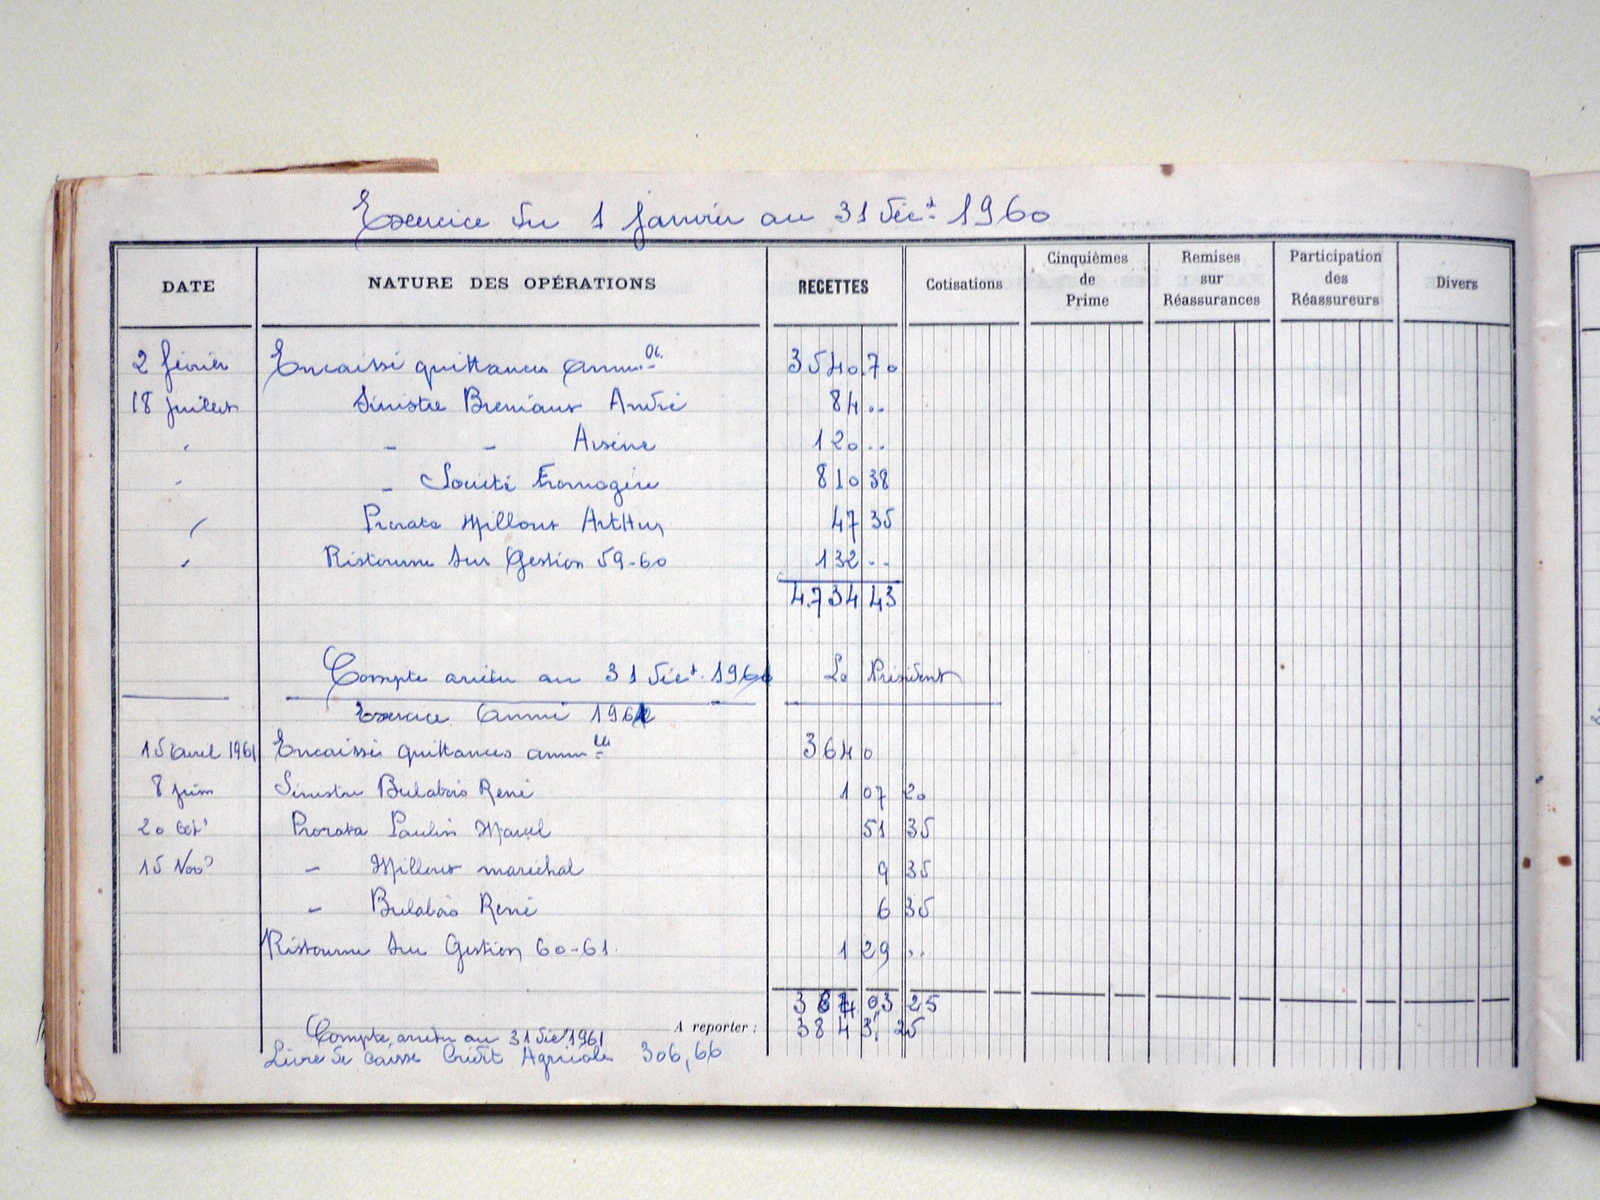 Exercice du 1 janvier au 31 Déct 1960
DATE NATURE DES OPÉRATIONS RECETTES Cotisations Cinquièmes de Prime Remises sur Réassurances Participation des Réassureurs Divers
2 février Encaissé quittances 3540.70
18 juillet Sinistre André 84 ..
" - - Arsène 120 ..
" - Société Fromagère 810 38
" Prorata Millour Arthur 47 35
" Ristourne sur Gestion 59-60 132 --
4.734 43
Compte arrêté au 31 Déct. Le Président
Exercice Année
15 avril 1961 Encaissé quittances 3640
8 juin Sinistre Bulabois René 107 20
20 Oct Prorata Paulin Marcel 51 35
15 Nov - Millour maréchal 9 35
- Bulabois René 6 35
Ristourne sur Gestion 60-61. 129 ..
25
Compte arrêté au 31 Déct 1961 A reporter : 3843, 25
Livre de caisse Crédit Agricole 306,66